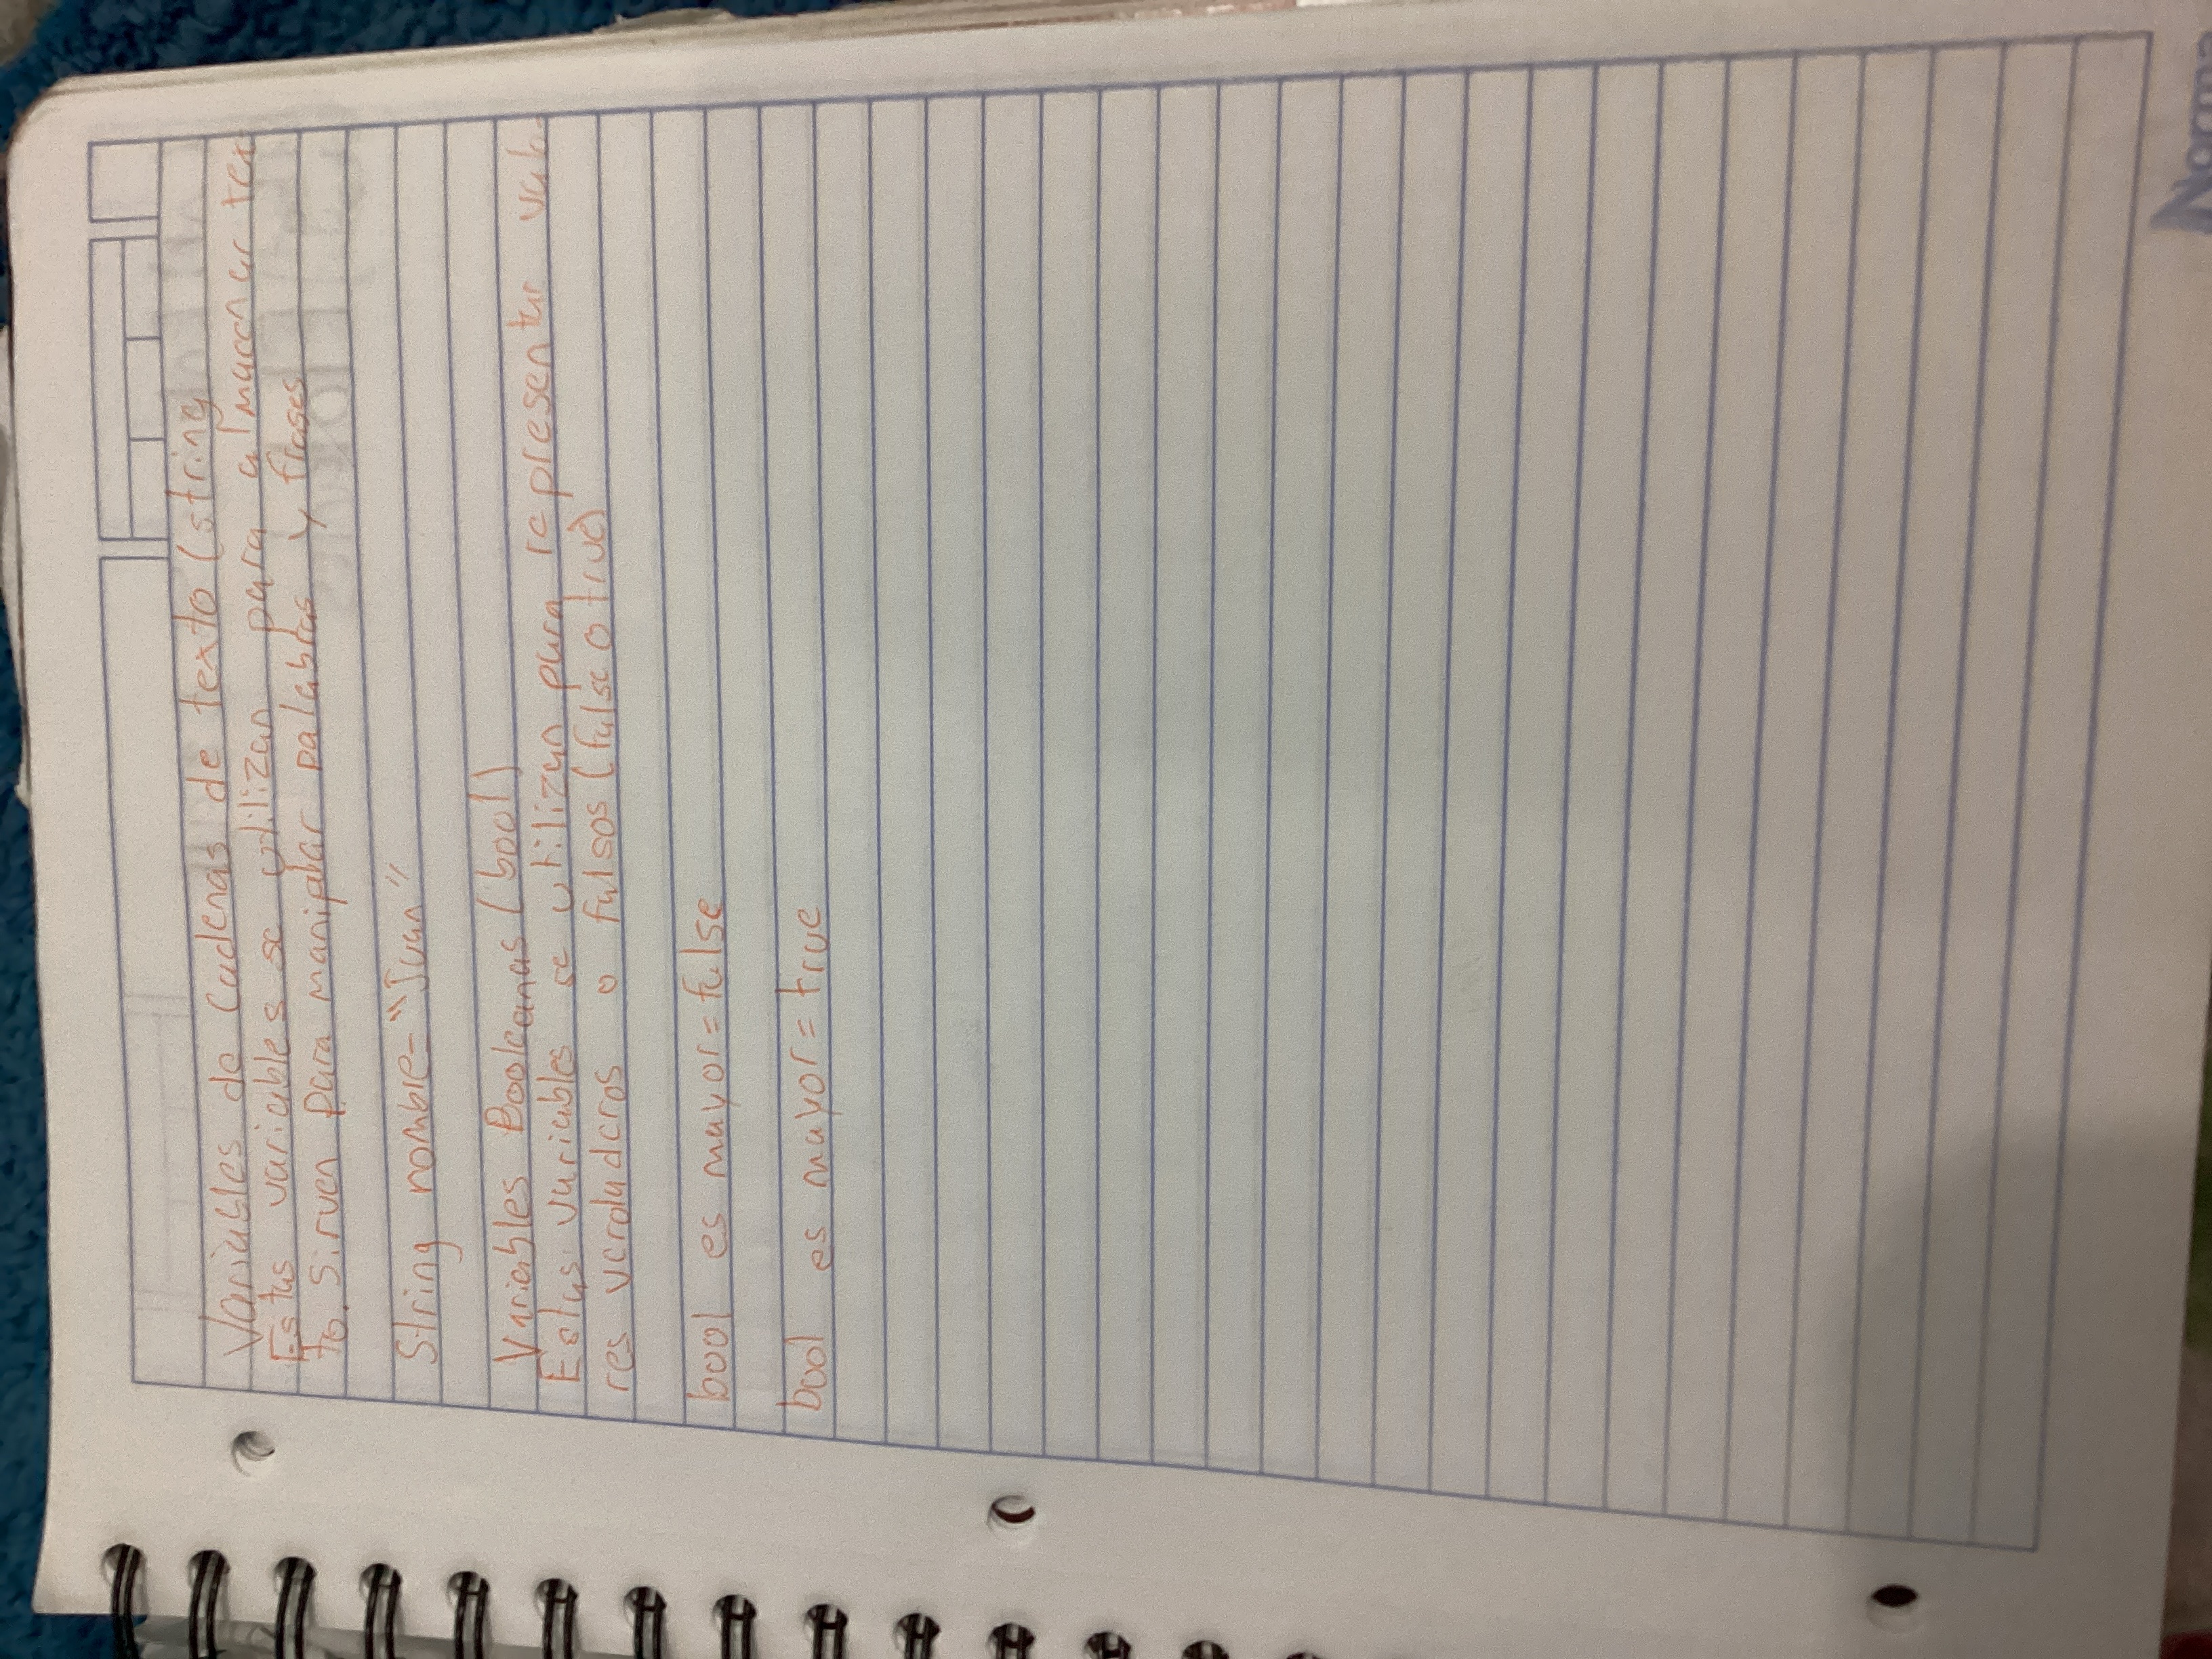 Variables de Cadenas de texto (string
Estas variables se utilizan para almacenar tex
to. Sirven para manipular palabras y frases
String nombre="Juan"
Variables Booleanas (bool)
Estas variables se utilizan para representar valo
res verdaderos o falsos (false o true)
bool es mayor=false
bool es mayor=true
Norma